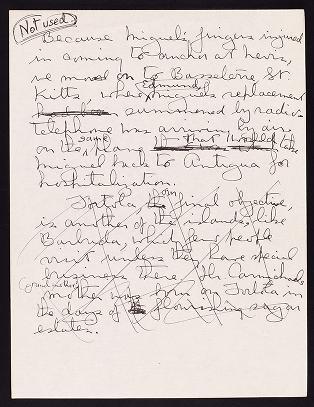 Not used
Because Miguel's fingers injured
in coming to anchor at Nevis,
we moved on to Basseterre St.
Kitts where Edmund Miguel's replacement
summoned by radio
telephone was arriving by air
on the same plane that would take
Miguel back to Antigua for
hospitalization.
Tortola our final objective
is another of the islands, like
Barbuda, which few people
visit unless they have special
business there. Mr Carmichael's
grandmother was born on Tortola in
the days of flourishing sugar
estates.